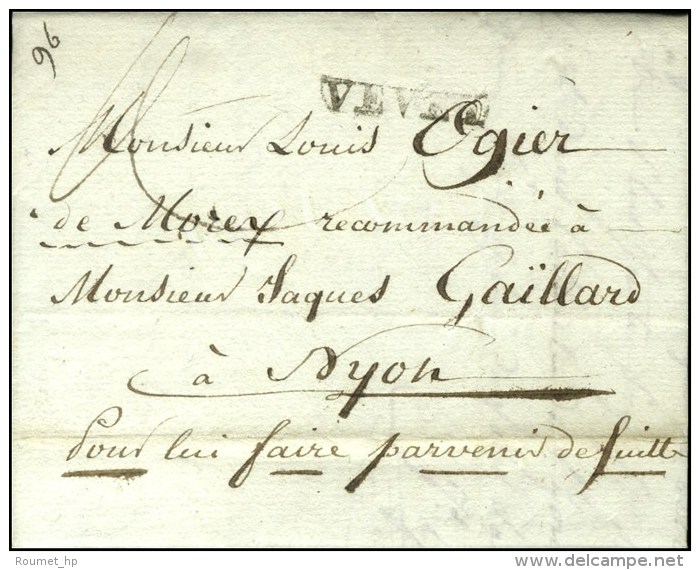 96
VEVEY
Monsieur Louis Ogier
de Morex recommandée à
Monsieur Jaques Gaïllard
à Nyon
Pour lui faire parvenir de suitte
Roumet_hp
delcampe.net